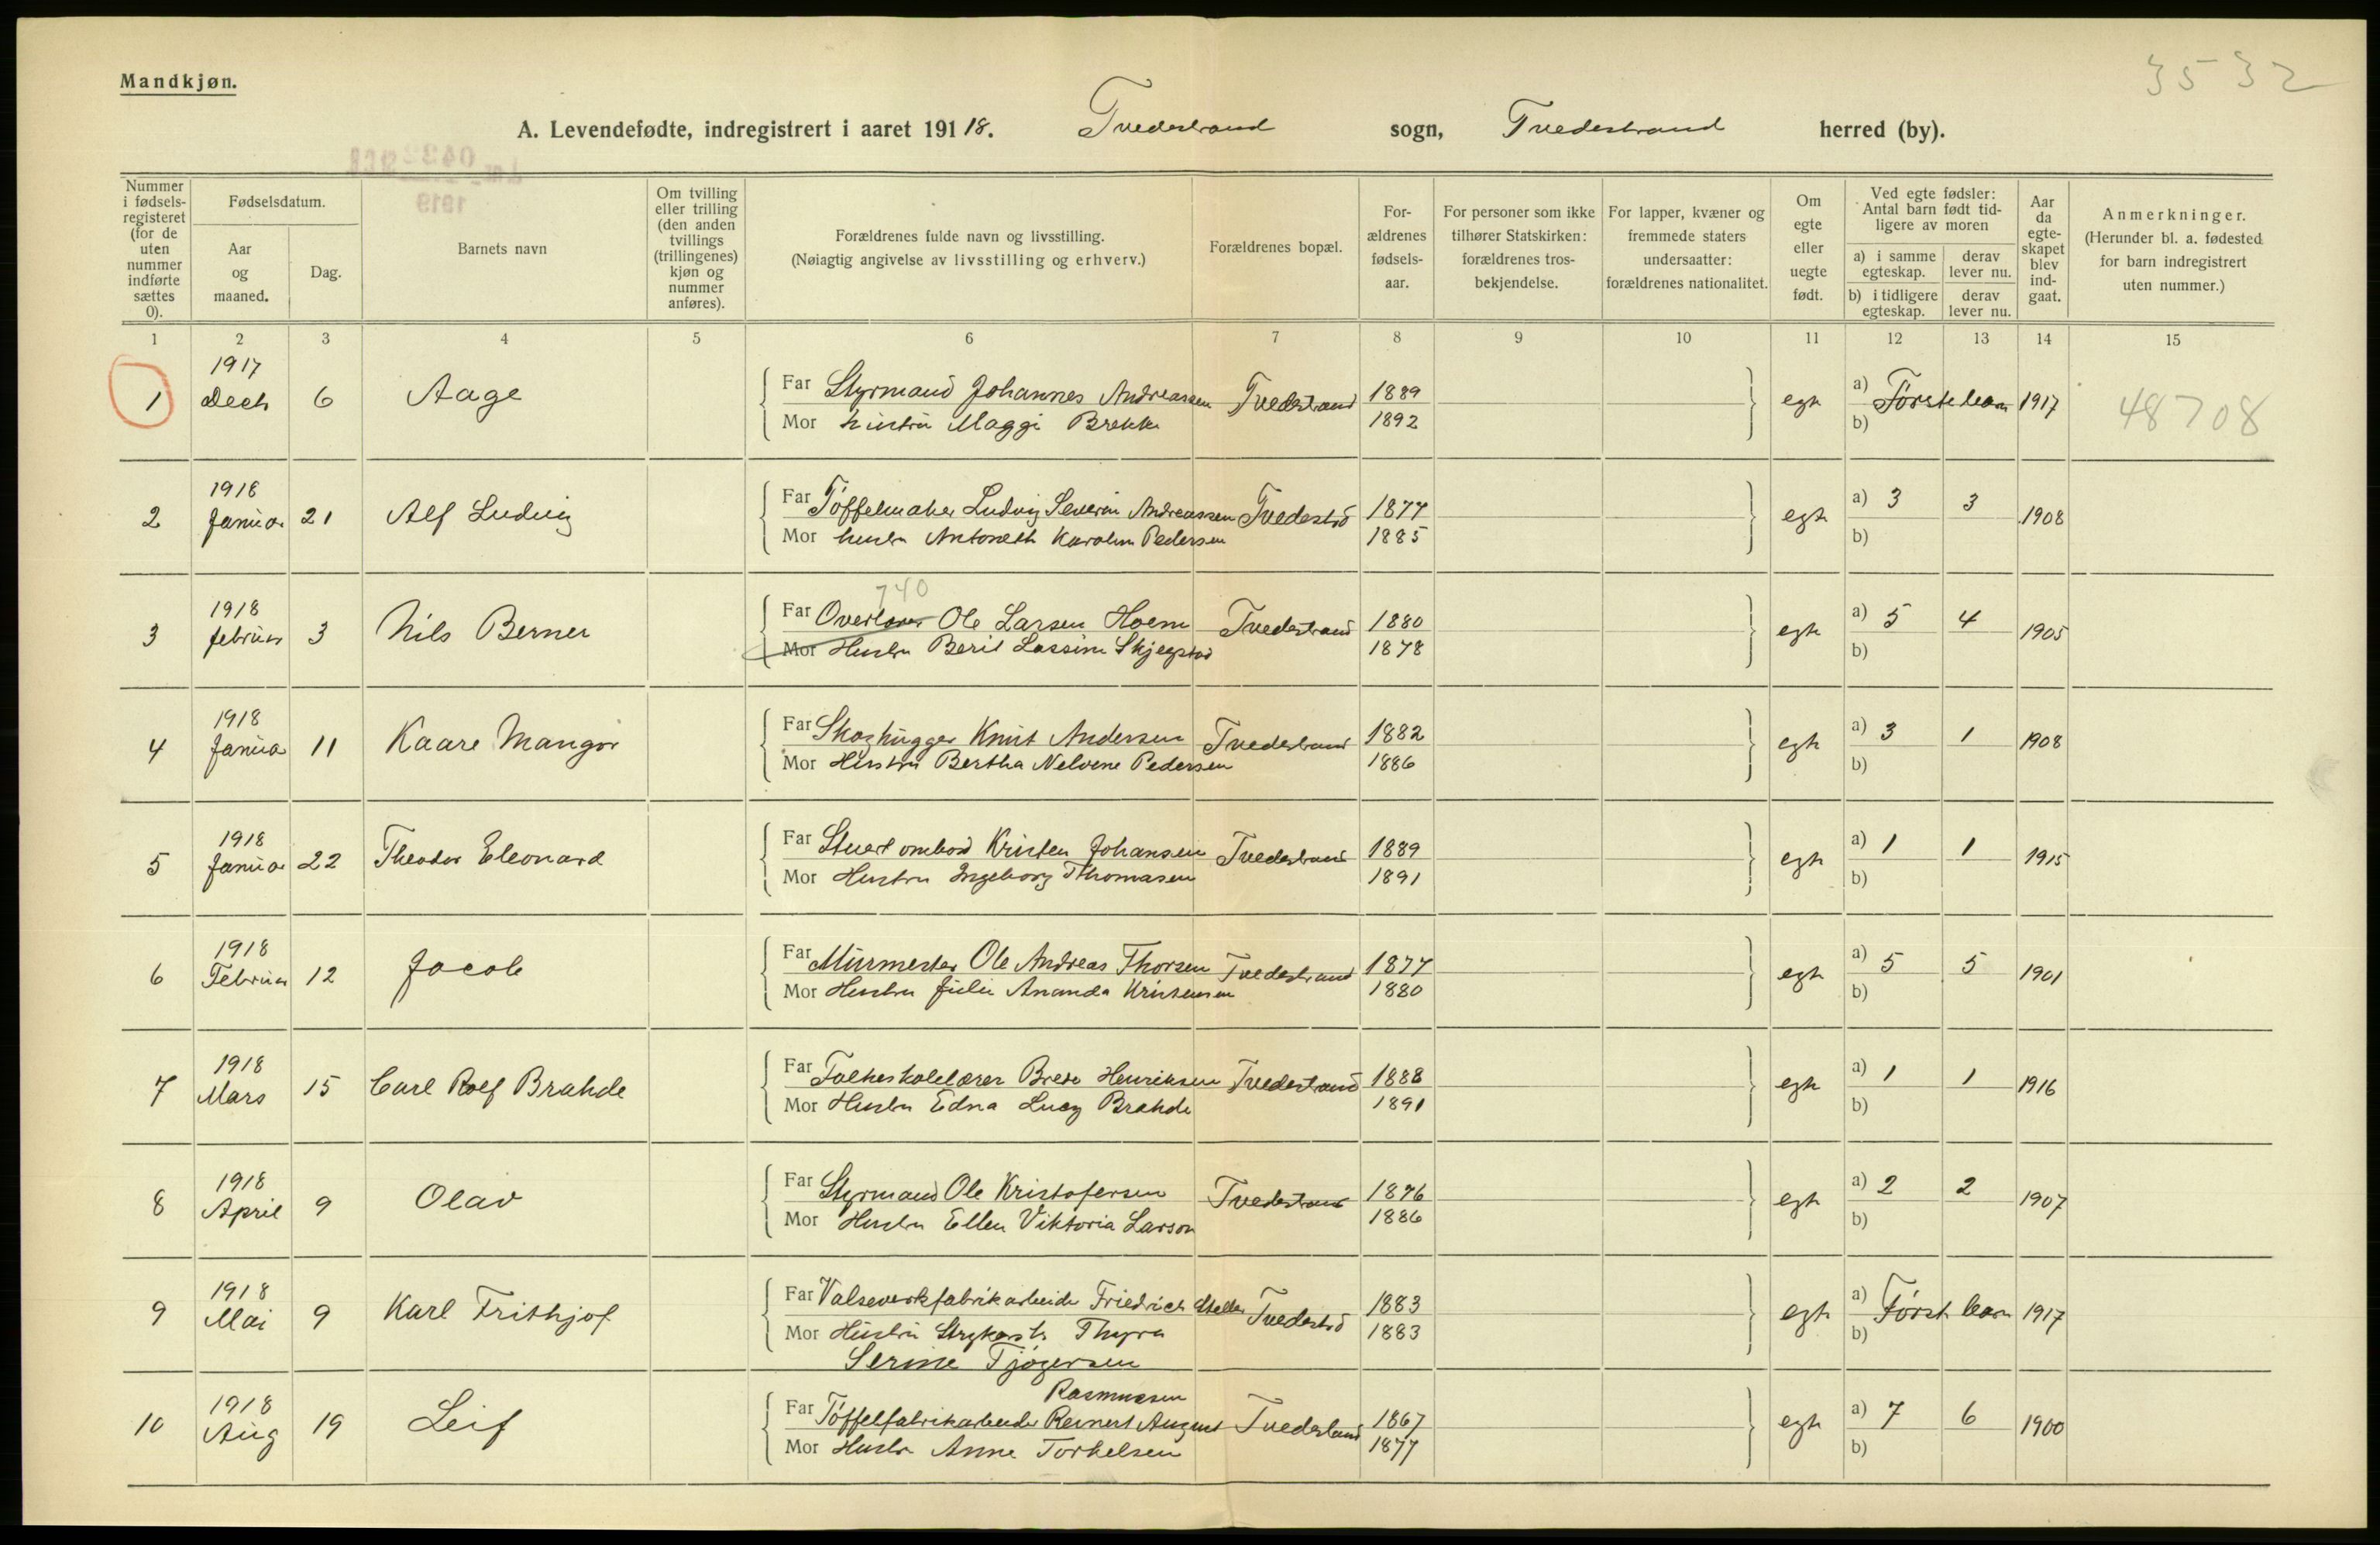 3532
Mandkjøn.
A. Levendefødte, indregistrert i aaret 191 18. Tvedestrand sogn, Tvedestrand herred (by).
Nummer i fødsels-registeret (for de uten nummer indførte sættes 0).
Fødselsdatum.
Aar og maaned.
Dag.
Barnets navn
Om tvilling eller trilling (den anden tvillings (trillingenes) kjøn og nummer anføres).
Forældrenes fulde navn og livsstilling.
(Nøiagtig angivelse av livsstilling og erhverv.)
Forældrenes bopæl.
For-ældrenes fødsels-aar.
For personer som ikke tilhører Statskirken: forældrenes tros-bekjendelse.
For lapper, kvæner og fremmede staters undersaatter: forældrenes nationalitet.
Om egte eller uegte født.
Ved egte fødsler: Antal barn født tid-ligere av moren
a) i samme egteskap. derav lever nu.
b) i tidligere egteskap. derav lever nu.
Aar da egte-skapet blev ind-gaat.
Anmerkninger.
(Herunder bl. a. fødested for barn indregistrert uten nummer.)
1 2 3 4 5 6 7 8 9 10 11 12 13 14 15
1917
1 Decb 6 Aage Far Styrmand Johannes Andreassen Tvedestrand 1889 egte a) Første barn 1917 48708
Mor hustru Maggi Brekke 1892 b)
1918
2 Januar 21 Alf Ludvig Far Tøffelmaker Ludvig Severin Andreassen Tvedestrd 1877 egte a) 3 3 1908
Mor hustru Antoneth Karoline Pedersen 1885 b)
740
1918
3 februar 3 Nils Berner Far Overlærer Ole Larsen Hoem Tvedestrand 1880 egte a) 5 4 1905
Mor Hustru Berit Lassine Skjegstad 1878 b)
1918
4 Januar 11 Kaare Mangor Far Skoghugger Knut Andersen Tvedestrand 1882 egte a) 3 1 1908
Mor Hustru Bertha Nelvene Pedersen 1886 b)
1918
5 Januar 22 Theodor Eleonard Far Stuert ombord Kristen Johansen Tvedestrand 1889 egte a) 1 1 1915
Mor Hustru Ingeborg Thomasen 1891 b)
1918
6 Februar 12 Jacob Far Murmester Ole Andreas Thorsen Tvedestrand 1877 egte a) 5 5 1901
Mor Hustru Julie Ananda Kristensen 1880 b)
1918
7 Mars 15 Carl Rolf Brahde Far Folkeskolelærer Brede Henriksen Tvedestrand 1888 egte a) 1 1 1916
Mor Hustru Edna Lucy Brahde 1891 b)
1918
8 April 9 Olav Far Styrmand Ole Kristofersen Tvedestrand 1876 egte a) 2 2 1907
Mor Hustru Ellen Viktoria Larson 1886 b)
1918
9 Mai 9 Karl Frithjof Far Valseverkfabrikarbeider Friedrich Tvedestrd 1883 egte a) Første barn 1917
Mor Hustru Thyra 1883 b)
Serine Tjøgersen
Rasmussen
1918
10 Aug 19 Leif Far Tøffelfabrikarbeider Reinert August Tvedestrand 1867 egte a) 7 6 1900
Mor Hustru Anne Torkelsen 1877 b)